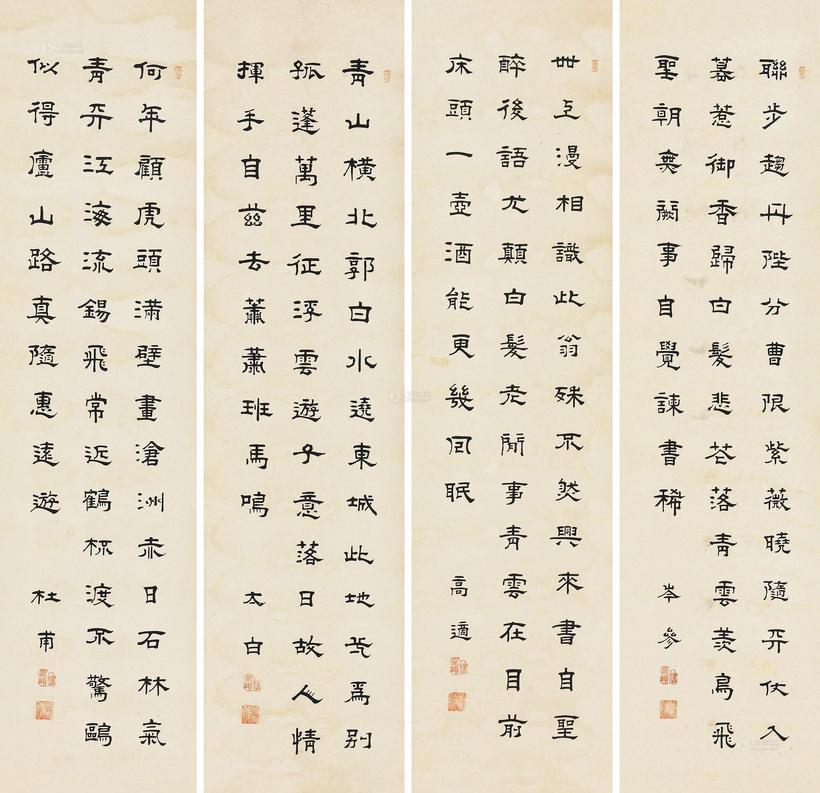 聯步趨丹陛分曹限紫薇曉隨天仗入
暮惹御香歸白髮悲花落青雲羨鳥飛
聖朝無闕事自覺諫書稀
岑參
世上漫相識此翁殊不然興來書自聖
醉後語尤顛白髮老閒事青雲在目前
床頭一壺酒能更幾回眠
高適
青山橫北郭白水遶東城此地一為別
孤蓬萬里征浮雲遊子意落日故人情
揮手自茲去蕭蕭班馬鳴
太白
何年顧虎頭滿壁畫滄洲赤日石林氣
青天江海流錫飛常近鶴杯渡不驚鷗
似得廬山路真隨惠遠遊
杜甫